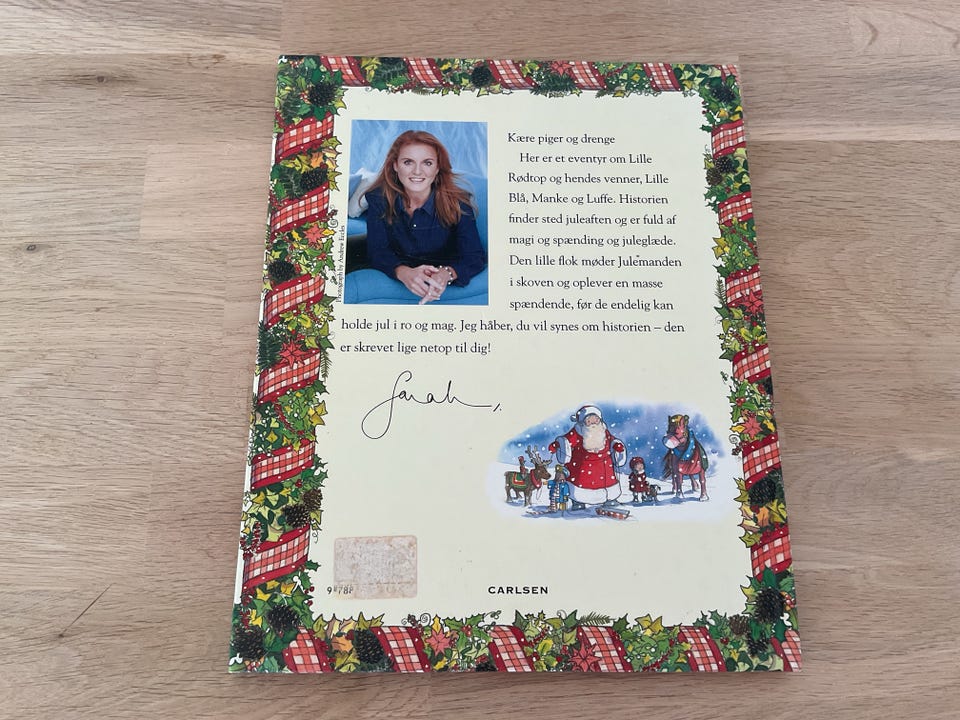 Kære piger og drenge
Her er et eventyr om Lille
Rødtop og hendes venner, Lille
Blå, Manke og Luffe. Historien
finder sted juleaften og er fuld af
magi og spænding og juleglæde.
Den lille flok møder Julemanden
i skoven og oplever en masse
spændende, før de endelig kan
holde jul i ro og mag. Jeg håber, du vil synes om historien – den
er skrevet lige netop til dig!
Photograph by Andrew Eccles
Sarah
CARLSEN